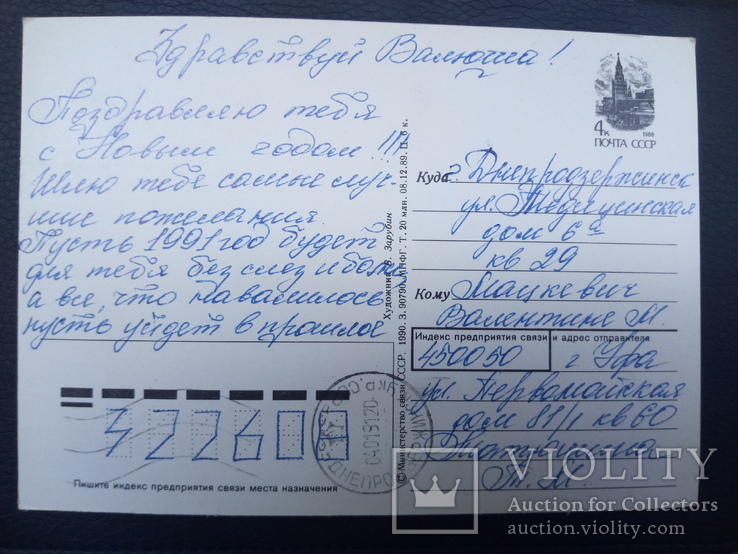 Здравствуй Валюша!
Поздравляю тебя
с Новым годом!!!
Шлю тебе самые луч-
шие пожелания.
Пусть 1991 год будет
для тебя без слез и боли
а все, что навалилось
пусть уйдет в прошлое
4к 1988
ПОЧТА СССР
Куда г. Днепродзержинск
ул. Медицинская
дом 6а
кв 29
Кому Мацкевич
Валентине М.
Индекс предприятия связи и адрес отправителя
450050 г Уфа
ул. Первомайская
дом 81/1 кв 60
Т. М.
© Министерство связи СССР, 1990. З. 90790. ППФГ. Т. 20 млн. 08.12.89. Ц. 6 к.
Художник В. Зарубин
322600
Пишите индекс предприятия связи места назначения
УКР.ССР
04019120
ДНЕПРОДЗЕРЖИНСК
VIOLITY
Auction for Collectors
auction.violity.com